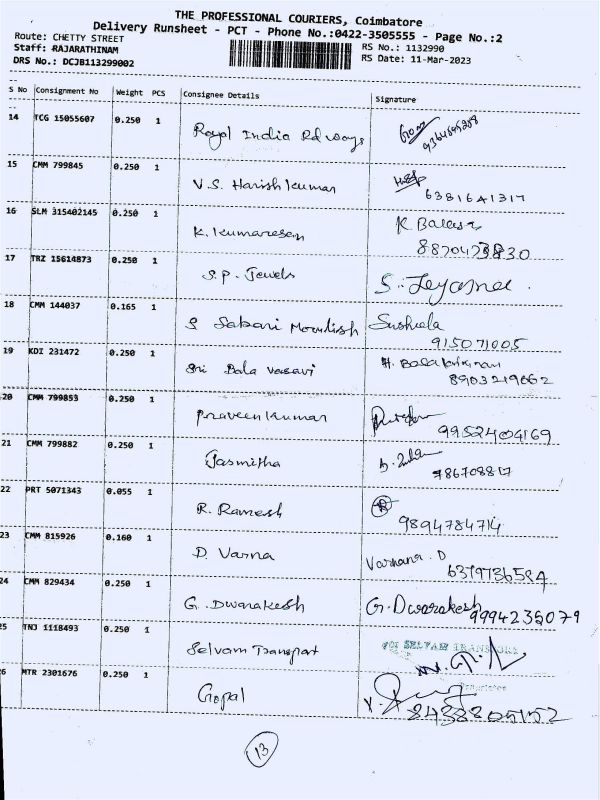 THE PROFESSIONAL COURIERS, Coimbatore
Delivery Runsheet - PCT - Phone No.:0422-3505555 - Page No.:2
Route: CHETTY STREET
RS No.: 1132990
Staff: RAJARATHINAM
RS Date: 11-Mar-2023
DRS No.: DCJB113299002
S No Consignment No Weight PCS Consignee Details Signature
14 TCG 15055607 0.250 1 Royal India Rdways
15 CMM 799845 0.250 1 V.S. Harish kumar
6381641317
16 SLM 315402145 0.250 1 K. Kumaresan K. Balasu
17 TRZ 15614873 0.250 1 S.P. Jewels
18 CMM 144037 0.165 1 S Sabari Susheela
915071005
19 KDI 231472 0.250 1 Sri Bala vasavi
8903219662
20 CMM 799853 0.250 1 Praveen kumar
9952404169
21 CMM 799882 0.250 1 Jasmitha
786708817
22 PRT 5071343 0.055 1 R. Ramesh
9894784714
23 CMM 815926 0.160 1 D. Varna
24 CMM 829434 0.250 1 G. Dwarakesh G. Dwarakesh
9994235079
25 TNJ 1118493 0.250 1 Selvam Transport SELVAM TRANSPORT
26 MTR 2301676 0.250 1 Gopal
13